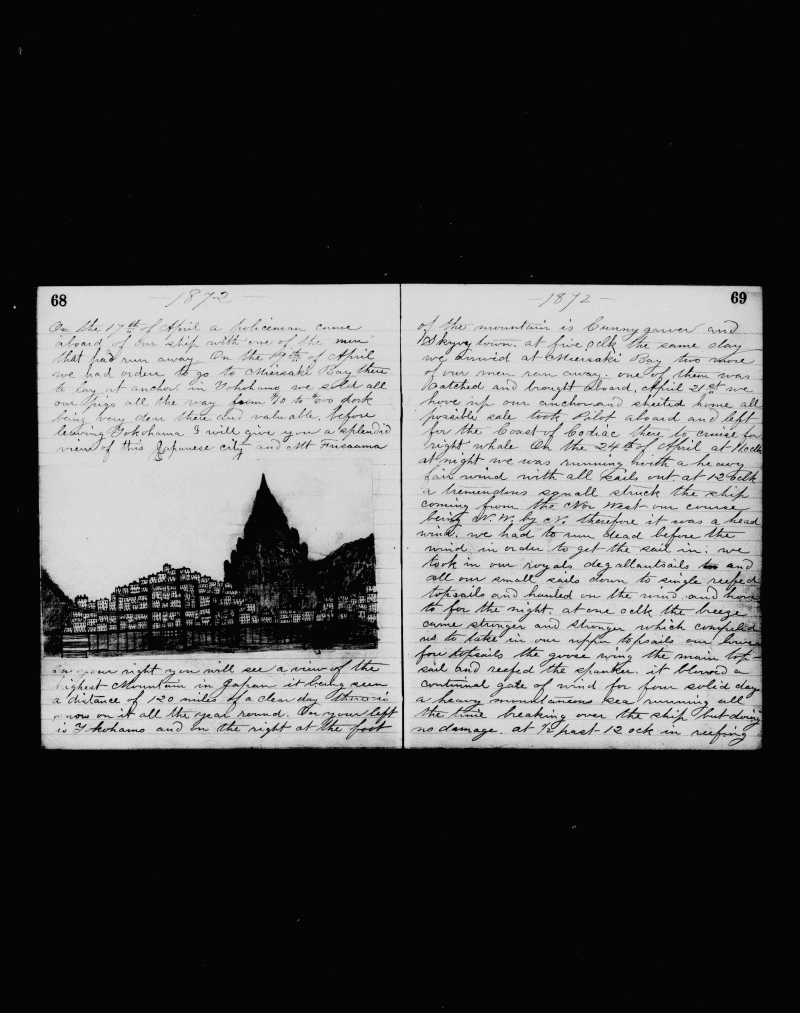 68
- 1872 -
On the 17th of April a policeman came
aboard of our ship with one of the men
that had run away. On the 19th of April
we had orders to go to Meirsaki Bay there
to lay at anchor. in Yokohamo we sold all
our pigs all the way from to pork
being very dear there and valuable. before
leaving Yokohama I will give you a splendid
view of this Japanese city and Mt Fusaama
your right you will see a view of the
highest Mountain in Japan it being seen
a distance of 120 miles of a clear day there is
snow on it all the year round. On your left
is Yokohamo and on the right at the foot
69
- 1872 -
of the mountain is and
town. at five oclk the same day
we arrived at Meirsaki Bay two more
of our men run away. one of them was
catched and brought aboard. April 21st we
hove up our anchor and sheited home all
possible sale took Pilot aboard and left
for the Coast of Codiac there to cruise for
right whale On the 24th of April at 11 oclk
at night we was running with a heavy
fair wind with all sails out at 12 oclk
a tremendous squall struck the ship
coming from the Nor West our course
being N. W. by N. therefore it was a head
wind. we had to run dead before the
wind in order to get the sail in: we
took in our royals degallantsails and
all our small sails down to single reefed
topsails and hauled on the wind and hove
to for the night. at one oclk the breeze
came stronger and stronger which compelled
us to take in our upper topsails our lower
fore topsails the goose wing the main top-
sail and reefed the spanker. it blowed a
continual gale of wind for four solid days
a heavy mountaneous sea running all
the time breaking over the ship but doing
no damage. at ½ past 12 ock in reefing